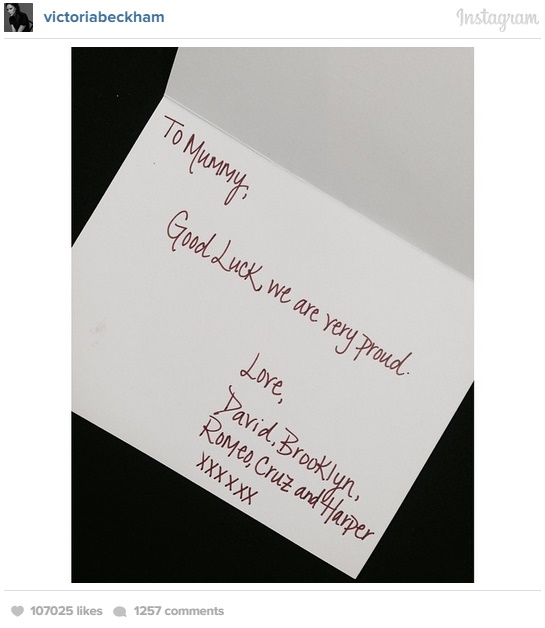 victoriabeckham
Instagram
To Mummy,
Good Luck, we are very proud.
Love,
David, Brooklyn,
Romeo, Cruz and Harper
xxxxxx
107025 likes 1257 comments